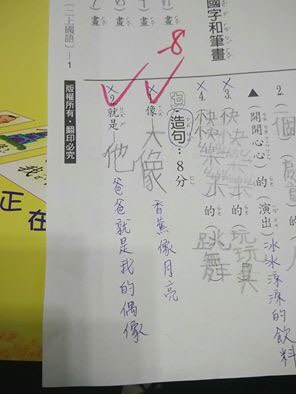 國字和筆畫
畫
畫
-8
2.
個
（開開心心）的（演出）
冰冰涼涼的飲料
3. 快快樂樂的玩玩具
4. 快快樂樂的跳舞
造句：8分
1. 像 大像
香蕉像月亮
2. 就是 他
爸爸就是我的偶像
版權所有・翻印必究
（二上國語）—1
正在
我的